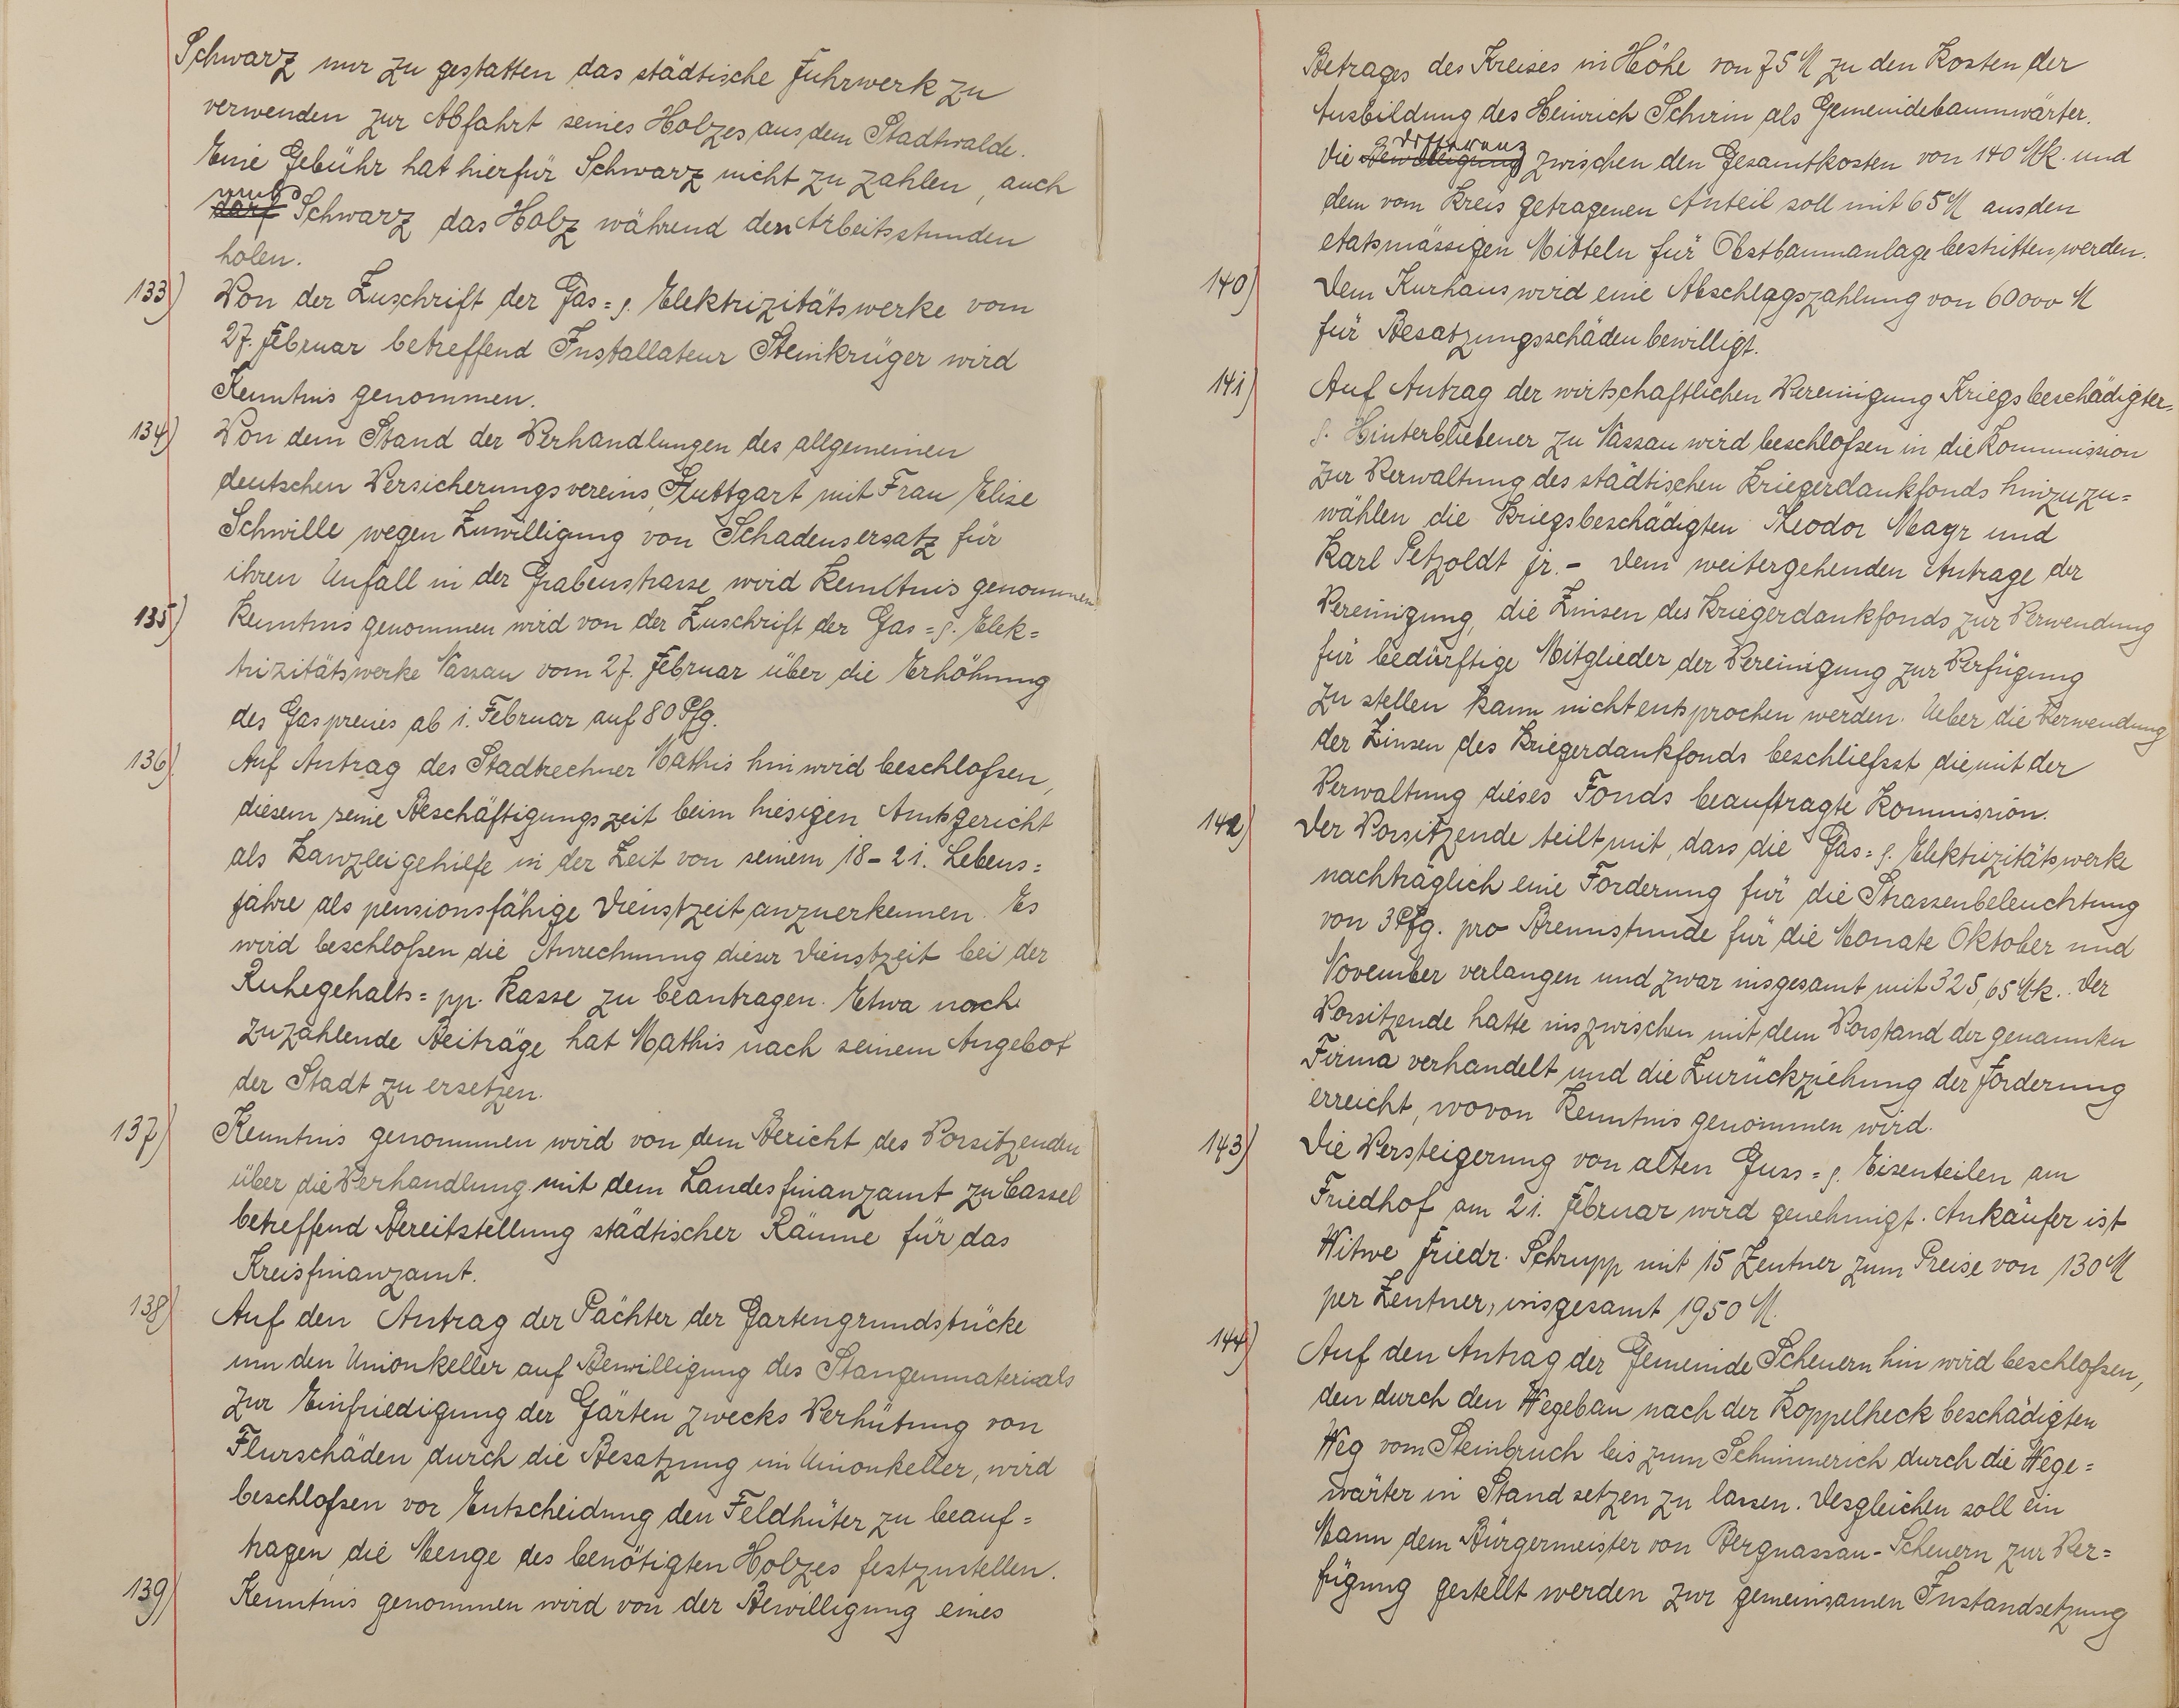 Schwarz nur zu gestatten das städtische Fuhrwerk zu
verwenden zur Abfahrt seines Holzes aus dem Stadtwalde.
Eine Gebühr hat hierfür Schwarz nicht zu zahlen, auch
muß
darf Schwarz das Holz während den Arbeitsstunden
holen.
133) Von der Zuschrift der Gas= u. Elektrizitätswerke vom
27. Februar betreffend Installateur Steinkrüger wird
Kenntnis genommen.
134) Von dem Stand der Verhandlungen des allgemeinen
deutschen Versicherungsvereins Stuttgart mit Frau Elise
Schwille wegen Zuwilligung von Schadensersatz für
ihren Unfall in der Grabenstrasse wird Kenntnis genommen.
135) Kenntnis genommen wird von der Zuschrift der Gas= u. Elek=
trizitätswerke Nassau vom 27. Februar über die Erhöhung
des Gaspreises ab 1. Februar auf 80 Pfg.
136) Auf Antrag des Stadtrechner Mathis hin wird beschloßen,
diesem seine Beschäftigungszeit beim hiesigen Amtsgericht
als Kanzleigehilfe in der Zeit von seinem 18-21. Lebens=
jahre als pensionsfähige Dienstzeit anzuerkennen. Es
wird beschloßen die Anrechnung dieser Dienstzeit bei der
Ruhegehalts= pp. Kasse zu beantragen. Etwa noch
zuzahlende Beiträge hat Mathis nach seinem Angebot
der Stadt zu ersetzen.
137) Kenntnis genommen wird von dem Bericht des Vorsitzenden
über die Verhandlung mit dem Landesfinanzamt zu Cassel
betreffend Bereitstellung städtischer Räume für das
Kreisfinanzamt.
138) Auf den Antrag der Pächter der Gartengrundstücke
um den Unionkeller auf Bewilligung des Stangenmaterials
zur Einfriedigung der Gärten zwecks Verhütung von
Flurschäden durch die Besatzung im Unionkeller, wird
beschloßen vor Entscheidung den Feldhüter zu beauf=
tragen, die Menge des benötigten Holzes festzustellen.
139) Kenntnis genommen wird von der Bewilligung eines
Betrages des Kreises in Höhe von 75 M zu den Kosten der
Ausbildung des Heinrich Schirm als Gemeindebaumwärter.
Differenz
Die Bewilligung zwischen den Gesamtkosten von 140 Mk. und
dem vom Kreis getragenen Anteil soll mit 65 M aus den
etatsmässigen Mitteln für Obstbaumanlage bestritten werden.
140) Dem Kurhaus wird eine Abschlagszahlung von 60000 M
für Besatzungsschäden bewilligt.
141) Auf Antrag der wirtschaftlichen Vereinigung Kriegsbeschädigter
u. Hinterbliebener zu Nassau wird beschloßen in die Kommission
zur Verwaltung des städtischen Kriegerdankfonds hinzuzu=
wählen die Kriegsbeschädigten Theodor Mayr und
Karl Petzoldt jr. - Dem weitergehenden Antrage der
Vereinigung, die Zinsen des Kriegerdankfonds zur Verwendung
für bedürftige Mitglieder der Vereinigung zur Verfügung
zu stellen kann nicht entsprochen werden. Ueber die Verwendung
der Zinsen des Kriegerdankfonds beschließst die mit der
Verwaltung dieses Fonds beauftragte Kommission.
142) Der Vorsitzende teilt mit, dass die Gas= u. Elektrizitätswerke
nachträglich eine Forderung für die Strassenbeleuchtung
von 3 Pfg. pro Brennstunde für die Monate Oktober und
November verlangen und zwar insgesamt mit 325,65 Mk. Der
Vorsitzende hatte inszwischen mit dem Vorstand der genannten
Firma verhandelt und die Zurückziehung der Forderung
erreicht, wovon Kenntnis genommen wird.
143) Die Versteigerung von alten Guss= u. Eisenteilen am
Friedhof am 21. Februar wird genehmigt. Ankäufer ist
Witwe Friedr. Schrupp mit 15 Zentner zum Preise von 130 M
per Zentner, insgesamt 1950 M.
144) Auf den Antrag der Gemeinde Scheuern hin wird beschloßen,
den durch den Wegebau nach der Koppelheck beschädigten
Weg vom Steinbruch bis zum Schimmerich durch die Wege=
wärter in Stand setzen zu lassen. Desgleichen soll ein
Mann dem Bürgermeister von Bergnassau-Scheuern zur Ver=
fügung gestellt werden zur gemeinsamen Instandsetzung